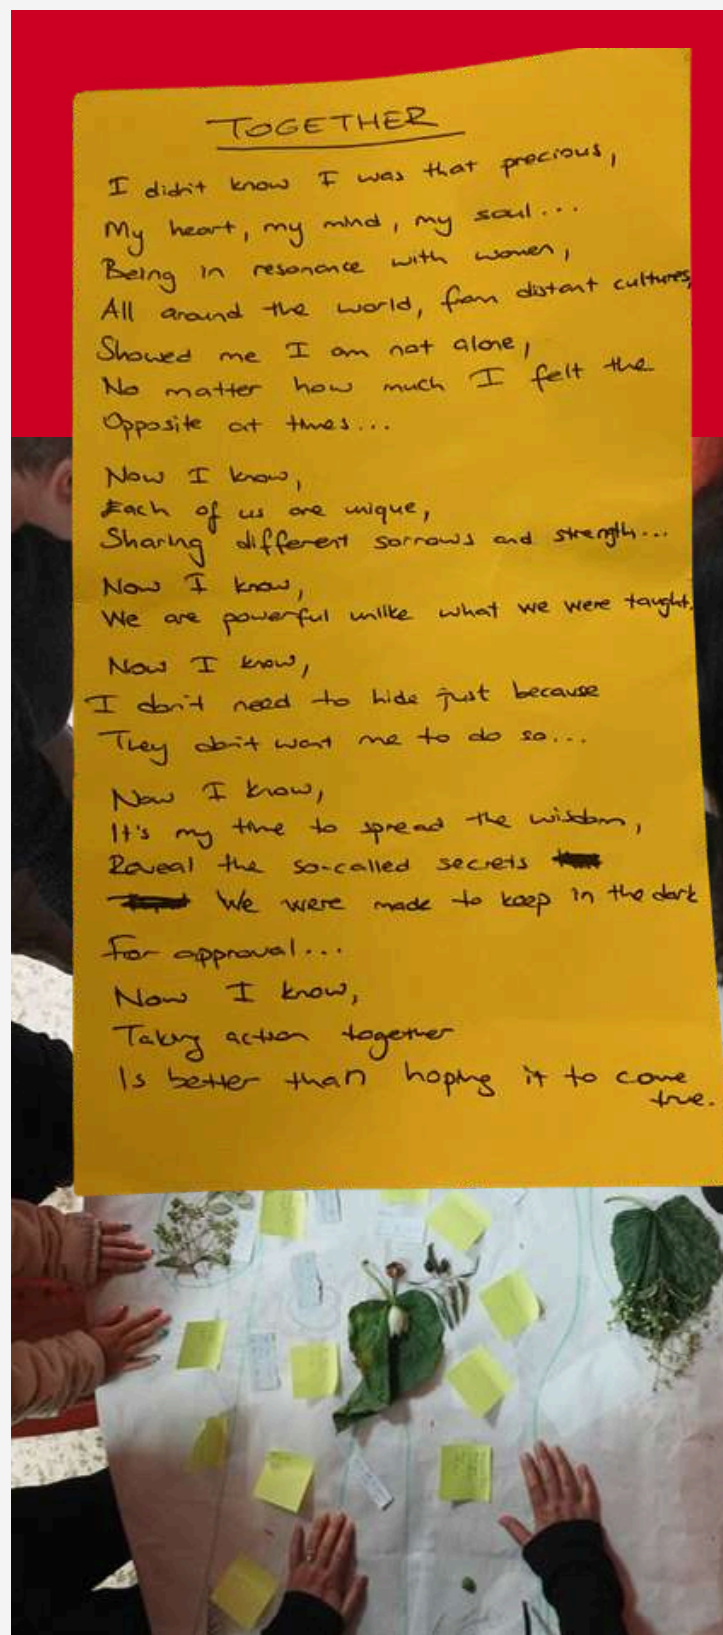 TOGETHER
I didn't know I was that precious,
My heart, my mind, my soul...
Being in resonance with women,
All around the world, from distant cultures,
Showed me I am not alone,
No matter how much I felt the
Opposite at times...
Now I know,
Each of us are unique,
Sharing different sorrows and strength...
Now I know,
We are powerful unlike what we were taught.
Now I know,
I don't need to hide just because
They don't want me to do so...
Now I know,
It's my time to spread the wisdom,
Reveal the so-called secrets
We were made to keep in the dark
For approval...
Now I know,
Taking action together
Is better than hoping it to come
true.